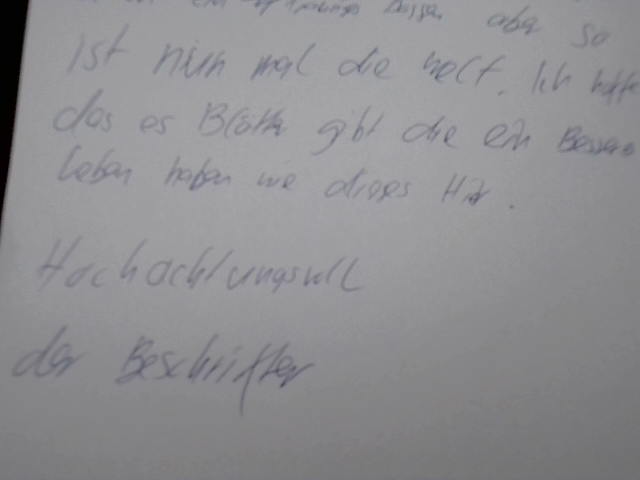 aber so
ist nun mal die welt. Ich hoffe
das es Blätter gibt die ein Besseres
Leben haben wie dieses Hir.
Hochachtungsvoll
der Beschrifter